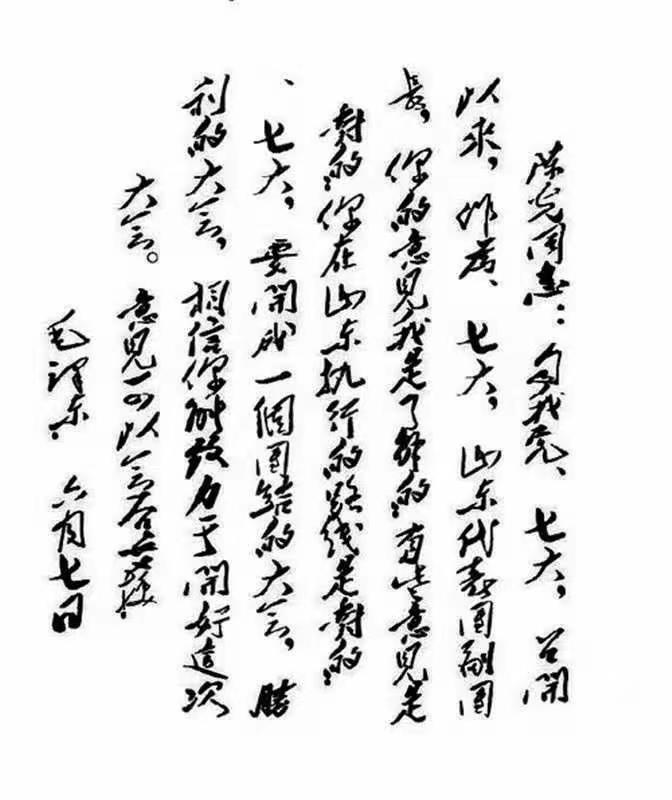 陈光同志：自我党、七大，召開
以来，作为、七大，山东代表团副团
長，你的意见我是了解的 有些意见是
對的，你在山东执行的路线是對的，
、七大，要開成一個团结的大会，勝
利的大会，相信你能致力于開好這次
大会。意见可以会后
毛澤东. 六月七日